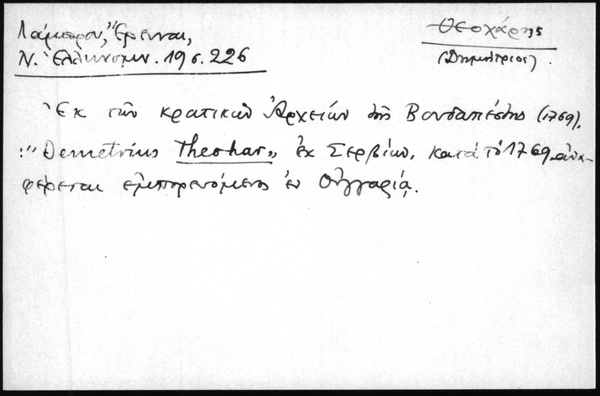 Λάμπρου, "Έρευναι,
Ν. Ἑλληνομν. 19 σ. 226
Θεοχάρης
(Δημήτριος)
Ἐκ τῶν κρατικῶν Ἀρχείων τῆς Βουδαπέστης (1769).
:"Demetrius Theohar„ ἐκ Σερβίων, κατὰ τὸ 1769 ἀνα-
φέρεται ἐμπορευόμενος ἐν Οὑγγαρίᾳ.